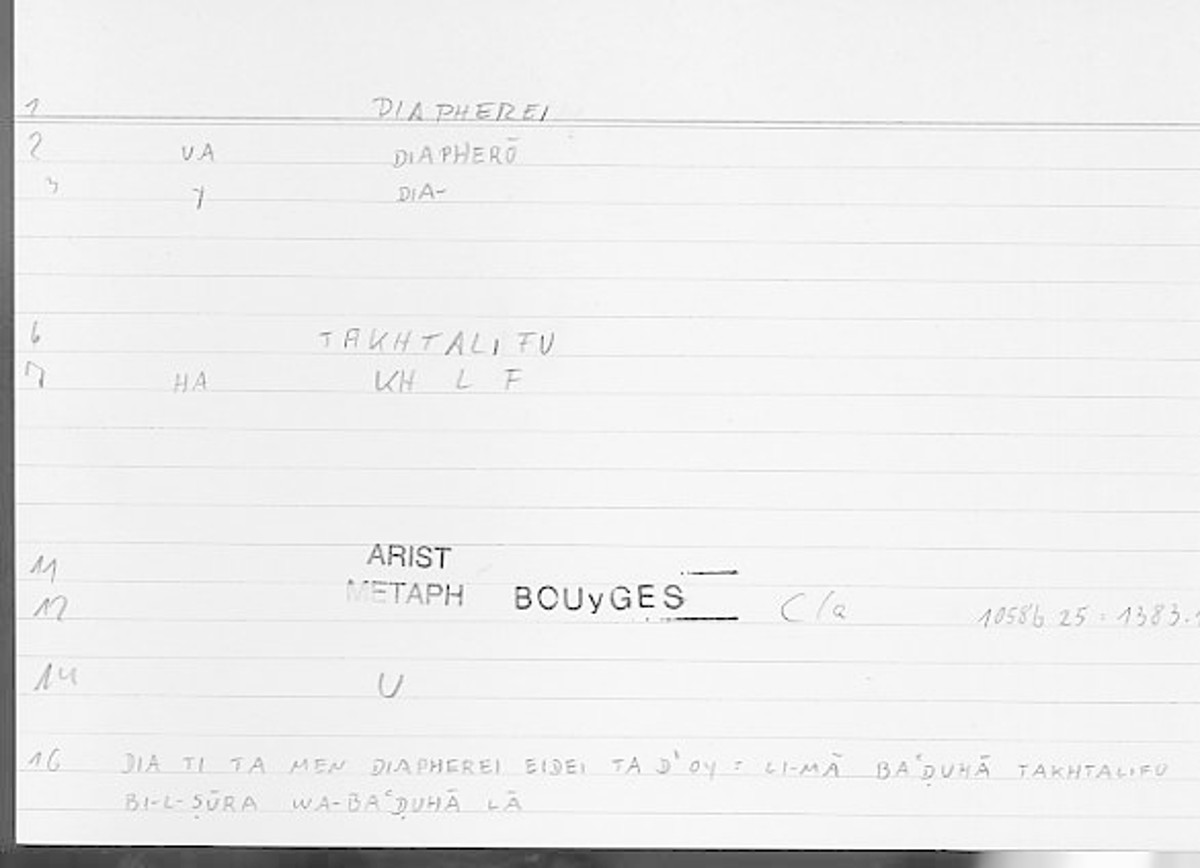 1 DIAPHEREI
2 VA DIAPHERŌ
3 y DIA-
6 TAKHTALIFU
7 HA KH L F
ARIST
11
12 METAPH BOUyGES C/a 1058b 25 = 1383.1
14 U
16 DIA TI TA MEN DIAPHEREI EIDEI TA D'OY = LI-MĀ BAʿḌUHĀ TAKHTALIFU
BI-L-ṢŪRA WA-BAʿḌUHĀ LĀ